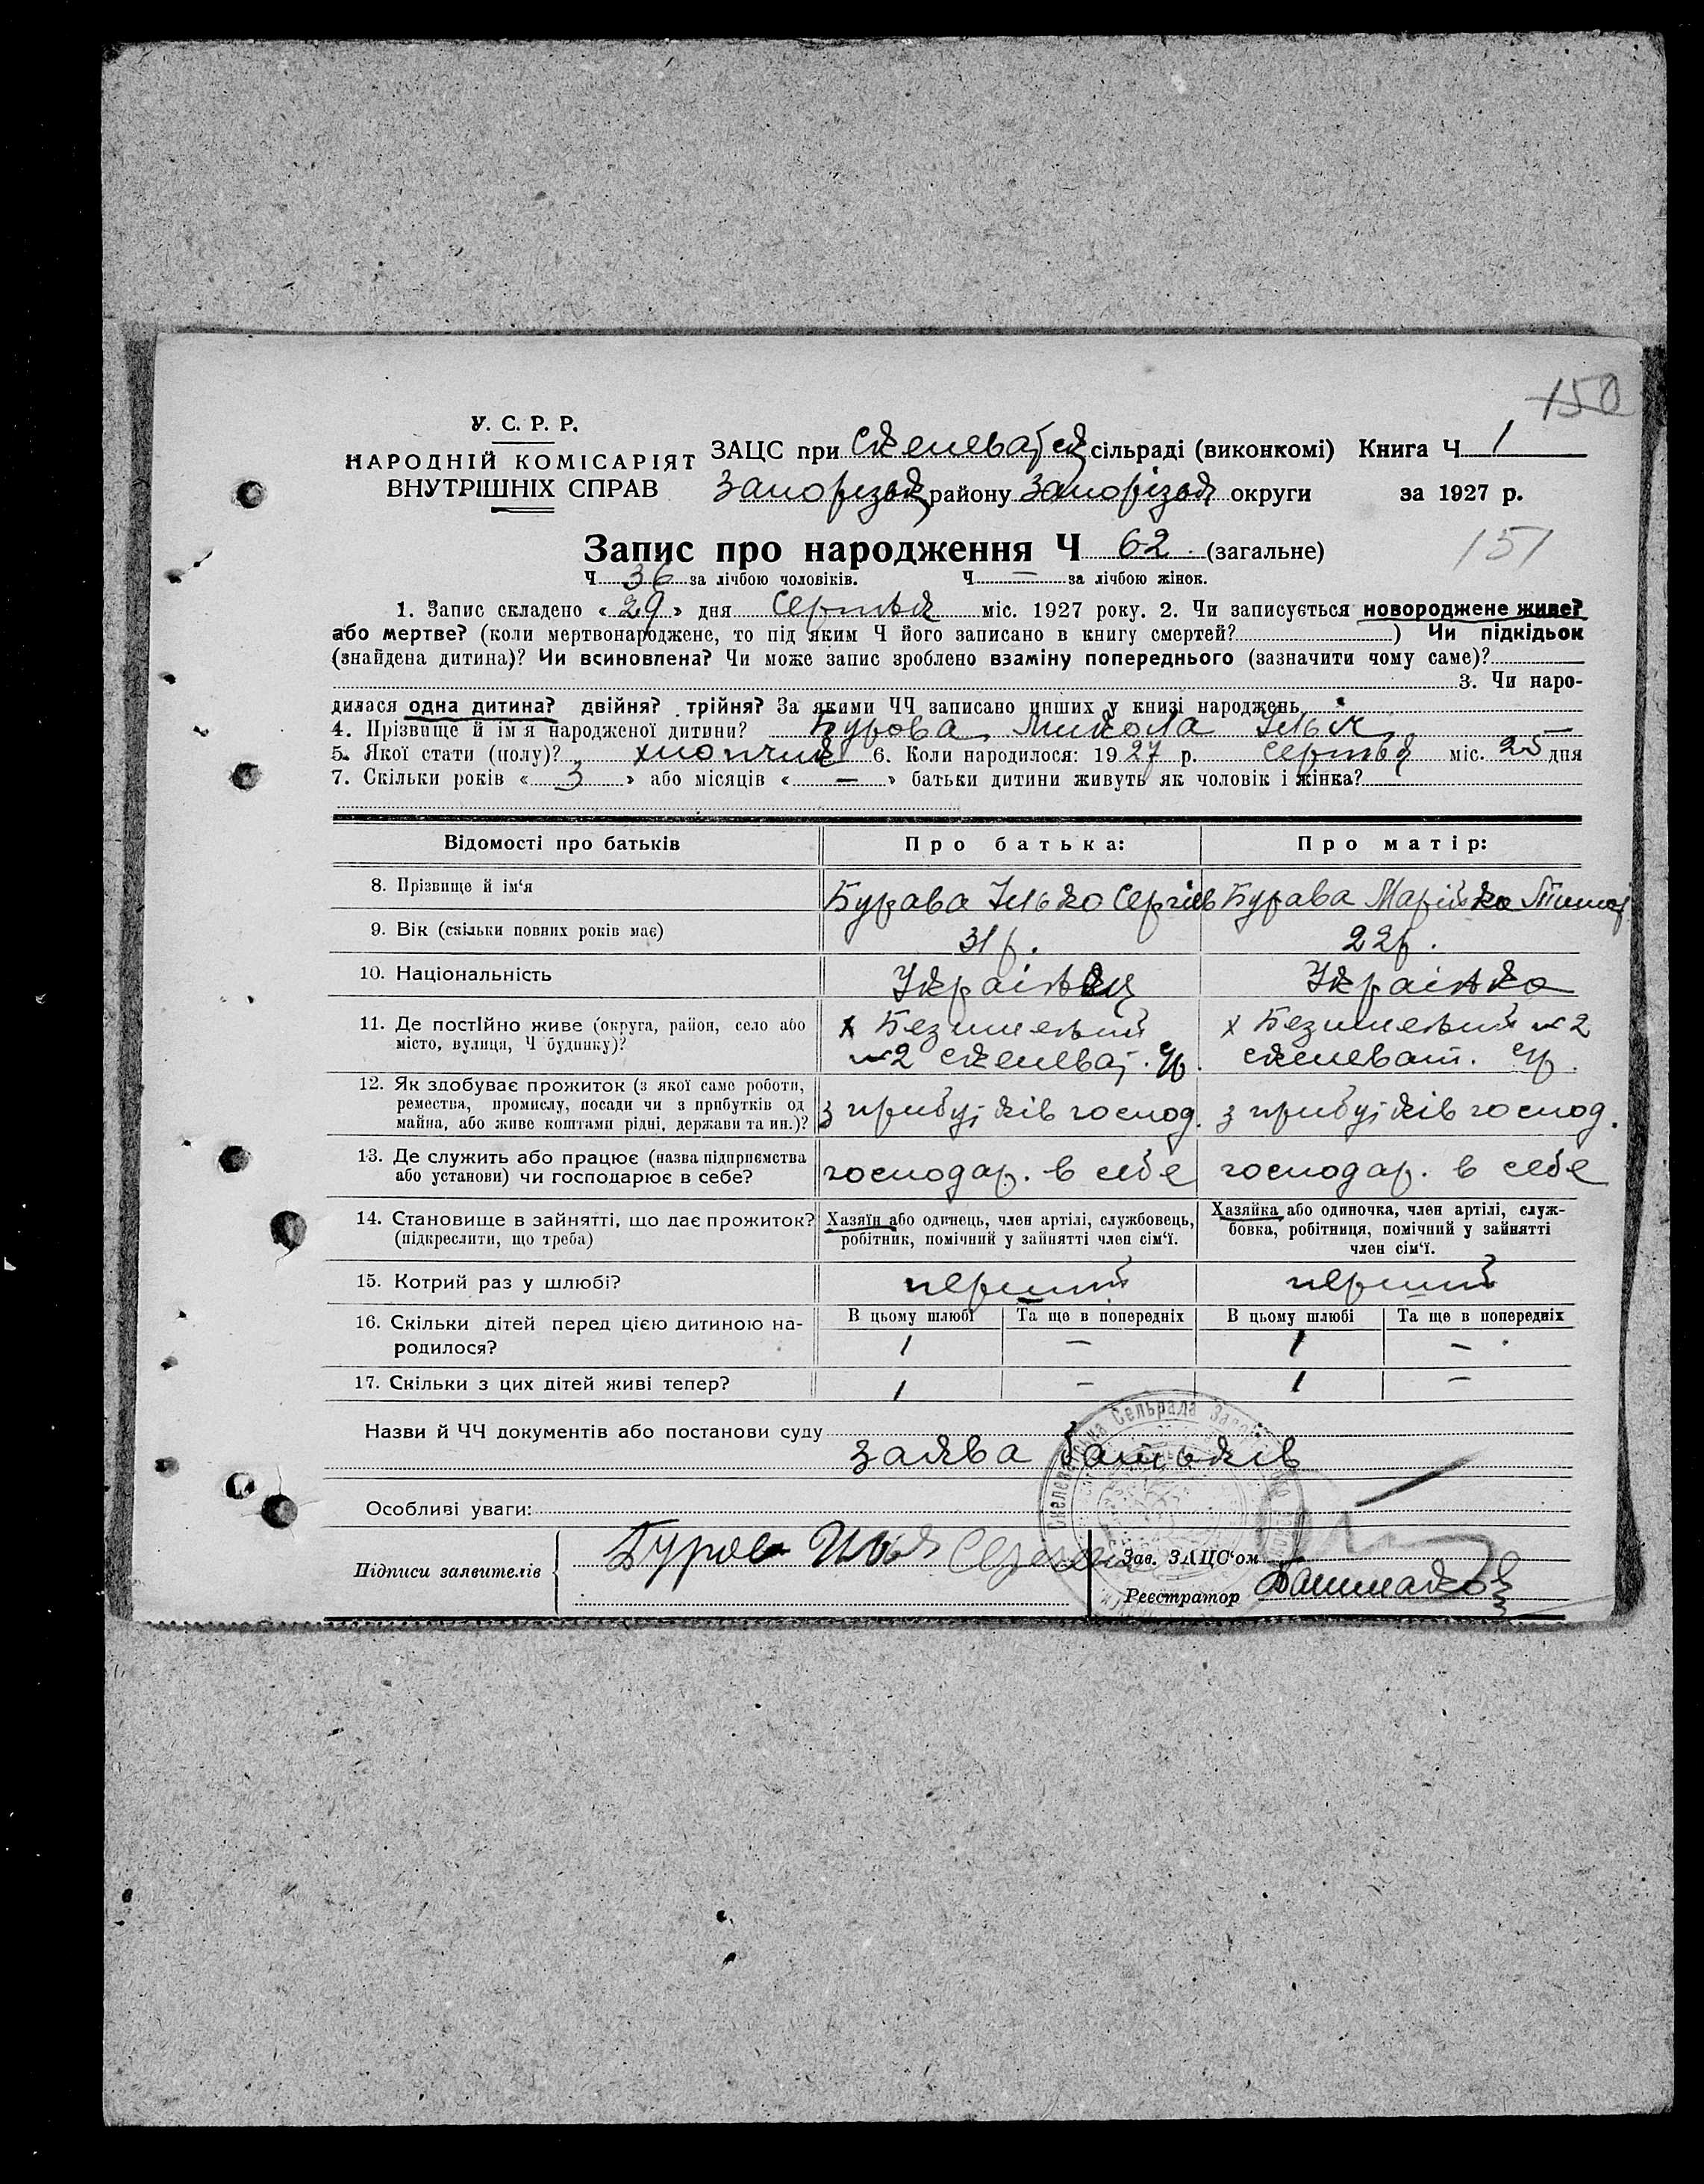 150
У. С. Р. Р.
НАРОДНІЙ КОМІСАРІЯТ
ВНУТРІШНІХ СПРАВ
ЗАЦС при Скелеватськ сільраді (виконкомі) Книга Ч 1
Запорізьк району Запорізьк округи за 1927 р.
Запис про народження Ч 62 (загальне)
151
Ч. 36 за лічбою чоловіків. Ч. — за лічбою жінок.
1. Запис складено « 29 » дня Серпня міс. 1927 року. 2. Чи записується новороджене живе?
або мертве? (коли мертвонароджене, то під яким Ч його записано в книгу смертей? ) Чи підкідьок
(знайдена дитина)? Чи всиновлена? Чи може запис зроблено взаміну попереднього (зазначити чому саме)?
3. Чи наро-
дилася одна дитина? двійня? трійня? За якими ЧЧ записано инших у книзі народжень
4. Прізвище й ім'я народженої дитини? Бурова Микола Ільк. —
5. Якої стати (полу)? хлопчик 6. Коли народилося: 1927 р. Серпня міс. 25 дня
7. Скільки років « 3 » або місяців « — » батьки дитини живуть як чоловік і жінка?
Відомості про батьків Про батька: Про матір:
8. Прізвище й ім'я Бурава Ілько Сергіїв Бурава Марійка
9. Вік (скільки повних років має) 31 р. 22 р.
10. Національність Українець Українка
11. Де постійно живе (округа, район, село або
місто, вулиця, Ч будинку)?
х Безименний
№2 скелеват. с/р.
х Безименний №2
скелеват. с/р.
12. Як здобуває прожиток (з якої саме роботи,
ремества, промислу, посади чи з прибутків од
майна, або живе коштами рідні, держави та ин.)?
з прибутків господ. з прибутків господ.
13. Де служить або працює (назва підприємства
або установи) чи господарює в себе?
господар. в себе господар. в себе
14. Становище в зайнятті, що дає прожиток?
(підкреслити, що треба)
Хазяїн або одинець, член артілі, службовець,
робітник, помічний у зайнятті член сім'ї.
Хазяйка або одиночка, член артілі, служ-
бовка, робітниця, помічний у зайнятті
член сім'ї.
15. Котрий раз у шлюбі? перший перший
16. Скільки дітей перед цією дитиною на-
родилося?
В цьому шлюбі Та ще в попередніх В цьому шлюбі Та ще в попередніх
1 — 1 —
17. Скільки з цих дітей живі тепер? 1 — 1 —
Назви й ЧЧ документів або постанови суду
заява батьків
Особливі уваги:
Підписи заявителів Буров Илья
Зав. ЗАЦС'ом
Реєстратор
Сельрада